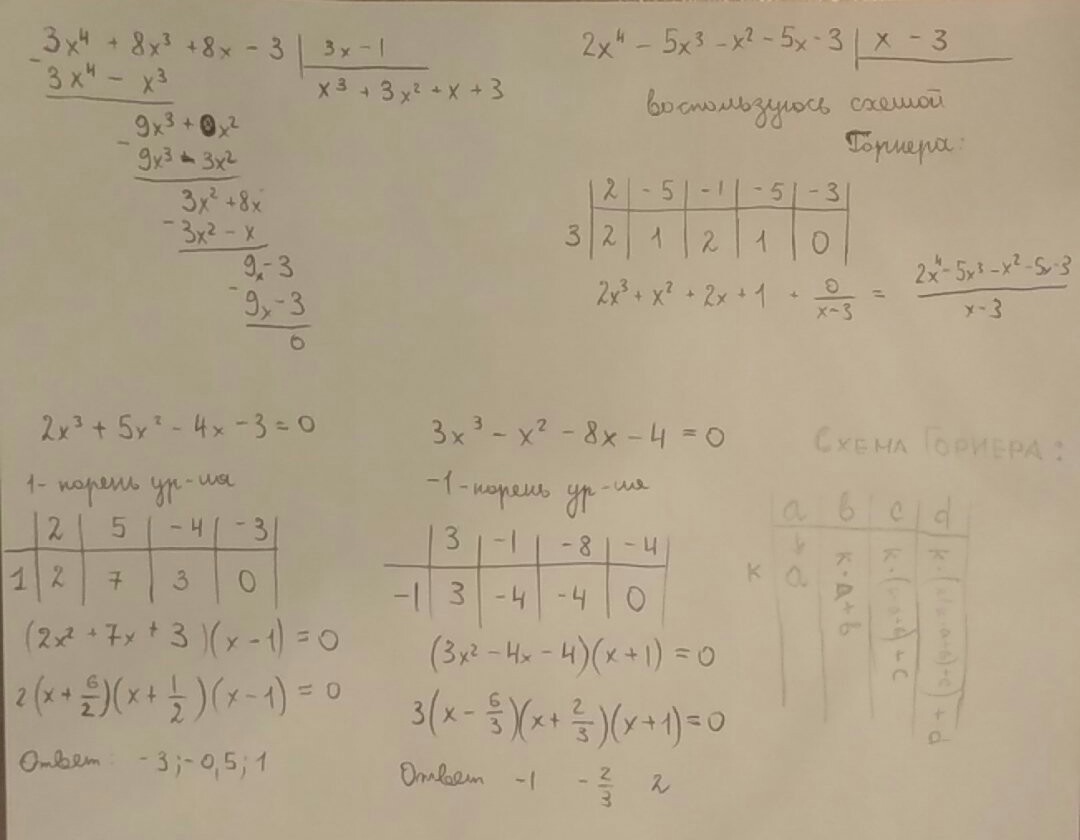 3x⁴ + 8x³ + 8x - 3 | 3x - 1
- 3x⁴ - x³ | x³ + 3x² + x + 3
9x³ + 0x²
- 9x³ - 3x²
3x² + 8x
- 3x² - x
9x - 3
- 9x - 3
0
2x⁴ - 5x³ - x² - 5x - 3 | x - 3
воспользуюсь схемой
Горнера:
2 | -5 | -1 | -5 | -3
3 | 2 | 1 | 2 | 1 | 0
2x³ + x² + 2x + 1 + 0/(x-3) = (2x⁴ - 5x³ - x² - 5x - 3)/(x - 3)
2x³ + 5x² - 4x - 3 = 0
1 - корень ур-ия
2 | 5 | -4 | -3
1 | 2 | 7 | 3 | 0
(2x² + 7x + 3)(x - 1) = 0
2(x + 6/2)(x + 1/2)(x - 1) = 0
Ответ: -3; -0,5; 1
3x³ - x² - 8x - 4 = 0
-1 - корень ур-ия
3 | -1 | -8 | -4
-1 | 3 | -4 | -4 | 0
(3x² - 4x - 4)(x + 1) = 0
3(x - 6/3)(x + 2/3)(x + 1) = 0
Ответ -1 -2/3 2
СХЕМА ГОРНЕРА:
a | b | c | d
к | a | к·a+b